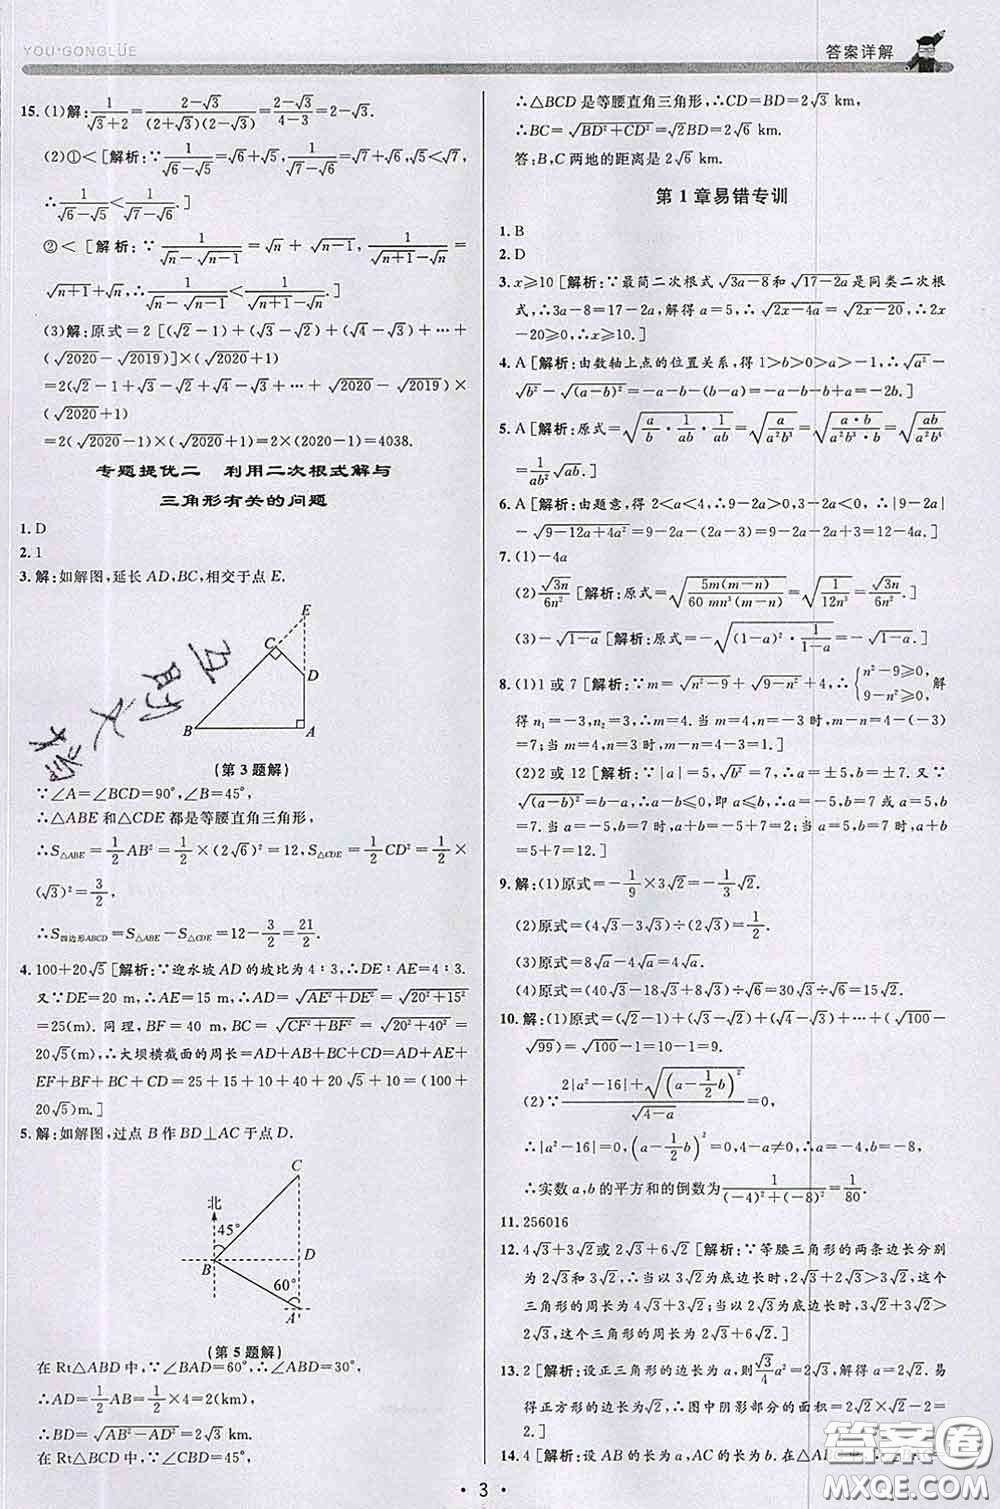 YOU·GONGLÜE
答案详解
15. (1)解: \frac{1}{\sqrt{3}+2}=\frac{2-\sqrt{3}}{(2+\sqrt{3})(2-\sqrt{3})}=\frac{2-\sqrt{3}}{4-3}=2-\sqrt{3}.
(2)①< [解析:∵\frac{1}{\sqrt{6}-\sqrt{5}}=\sqrt{6}+\sqrt{5},\frac{1}{\sqrt{7}-\sqrt{6}}=\sqrt{7}+\sqrt{6},\sqrt{5}<\sqrt{7},
∴\frac{1}{\sqrt{6}-\sqrt{5}}<\frac{1}{\sqrt{7}-\sqrt{6}}.]
②< [解析:∵\frac{1}{\sqrt{n}-\sqrt{n-1}}=\sqrt{n}+\sqrt{n-1},\frac{1}{\sqrt{n+1}-\sqrt{n}}=
\sqrt{n+1}+\sqrt{n},∴\frac{1}{\sqrt{n}-\sqrt{n-1}}<\frac{1}{\sqrt{n+1}-\sqrt{n}}.]
(3)解:原式=2[(\sqrt{2}-1)+(\sqrt{3}-\sqrt{2})+(\sqrt{4}-\sqrt{3})+…+
(\sqrt{2020}-\sqrt{2019})]×(\sqrt{2020}+1)
=2(\sqrt{2}-1+\sqrt{3}-\sqrt{2}+\sqrt{4}-\sqrt{3}+…+\sqrt{2020}-\sqrt{2019})×
(\sqrt{2020}+1)
=2(\sqrt{2020}-1)×(\sqrt{2020}+1)=2×(2020-1)=4038.
专题提优二 利用二次根式解与
三角形有关的问题
1. D
2. 1
3. 解:如解图,延长AD,BC,相交于点E.
E
C
D
B
A
(第3题解)
∵∠A=∠BCD=90°,∠B=45°,
∴△ABE和△CDE都是等腰直角三角形,
∴S_{△ABE}=\frac{1}{2}AB²=\frac{1}{2}×(2\sqrt{6})²=12,S_{△CDE}=\frac{1}{2}CD²=\frac{1}{2}×
(\sqrt{3})²=\frac{3}{2},
∴S_{四边形ABCD}=S_{△ABE}-S_{△CDE}=12-\frac{3}{2}=\frac{21}{2}.
4. 100+20\sqrt{5} [解析:∵迎水坡AD的坡比为4∶3,∴DE∶AE=4∶3.
又∵DE=20 m,∴AE=15 m,∴AD=\sqrt{AE²+DE²}=\sqrt{20²+15²}
=25(m). 同理,BF=40 m,∴BC=\sqrt{CF²+BF²}=\sqrt{20²+40²}=
20\sqrt{5}(m),∴大坝横截面的周长=AD+AB+BC+CD=AD+AE+
EF+BF+BC+CD=25+15+10+40+20\sqrt{5}+10=(100+
20\sqrt{5})m.]
5. 解:如解图,过点B作BD⊥AC于点D.
C
北
45°
D
B
60°
A
(第5题解)
在Rt△ABD中,∵∠BAD=60°,∴∠ABD=30°,
∴AD=\frac{1}{2}AB=\frac{1}{2}×4=2(km),
∴BD=\sqrt{AB²-AD²}=2\sqrt{3} km.
在Rt△BCD中,∵∠CBD=45°,
∴△BCD是等腰直角三角形,∴CD=BD=2\sqrt{3} km,
∴BC=\sqrt{BD²+CD²}=\sqrt{2}BD=2\sqrt{6} km.
答:B,C两地的距离是2\sqrt{6} km.
第1章易错专训
1. B
2. D
3. x≥10 [解析:∵最简二次根式\sqrt{3a-8}和\sqrt{17-2a}是同类二次根
式,∴3a-8=17-2a,解得a=5,∴\sqrt{2x-4a}=\sqrt{2x-20},∴2x
-20≥0,解得x≥10.]
4. A [解析:由数轴上点的位置关系,得1>b>0>a>-1,∴\sqrt{a²}-
\sqrt{b²}-\sqrt{(a-b)²}=-a-b-(b-a)=-a-b-b+a=-2b.]
5. A [解析:原式=\sqrt{\frac{a}{b}·\frac{1}{ab}·\frac{1}{ab}}=\sqrt{\frac{a}{a²b³}}=\sqrt{\frac{a·b}{a²b³·b}}=\sqrt{\frac{ab}{a²b⁴}}
=\frac{1}{ab²}\sqrt{ab}.]
6. A [解析:由题意,得2<a<4,∴9-2a>0,3-2a<0,∴|9-2a|
-\sqrt{9-12a+4a²}=9-2a-(2a-3)=9-2a-2a+3=12-4a.]
7. (1)-4a
(2)\frac{\sqrt{3n}}{6n²} [解析:原式=\sqrt{\frac{5m(m-n)}{60mn³(m-n)}}=\sqrt{\frac{1}{12n³}}=\frac{\sqrt{3n}}{6n²}.]
(3)-\sqrt{1-a} [解析:原式=-\sqrt{(1-a)²·\frac{1}{1-a}}=-\sqrt{1-a}.]
8. (1)1或7 [解析:∵m=\sqrt{n²-9}+\sqrt{9-n²}+4,∴{n²-9≥0, 9-n²≥0, 解
得n₁=-3,n₂=3,∴m=4. 当m=4,n=-3时,m-n=4-(-3)
=7;当m=4,n=3时,m-n=4-3=1.]
(2)2或12 [解析:∵|a|=5,\sqrt{b²}=7,∴a=±5,b=±7. ∵
\sqrt{(a-b)²}=b-a,∴a-b≤0,即a≤b,∴a=-5,b=7或a=5,b
=7. 当a=-5,b=7时,a+b=-5+7=2;当a=5,b=7时,a+b
=5+7=12.]
9. 解:(1)原式=-\frac{1}{9}×3\sqrt{2}=-\frac{1}{3}\sqrt{2}.
(2)原式=(4\sqrt{3}-3\sqrt{3})÷(2\sqrt{3})=\frac{1}{2}.
(3)原式=8\sqrt{a}-4\sqrt{a}=4\sqrt{a}.
(4)原式=(40\sqrt{3}-18\sqrt{3}+8\sqrt{3})÷\sqrt{6}=30\sqrt{3}÷\sqrt{6}=15\sqrt{2}.
10. 解:(1)原式=(\sqrt{2}-1)+(\sqrt{3}-\sqrt{2})+(\sqrt{4}-\sqrt{3})+…+(\sqrt{100}
-\sqrt{99})=\sqrt{100}-1=10-1=9.
(2)∵\frac{2|a²-16|+\sqrt{(a-\frac{1}{2}b)²}}{\sqrt{4-a}}=0,
∴|a²-16|=0,(a-\frac{1}{2}b)²=0,4-a>0,∴a=-4,b=-8,
∴实数a,b的平方和的倒数为\frac{1}{(-4)²+(-8)²}=\frac{1}{80}.
11. 256016
12. 4\sqrt{3}+3\sqrt{2}或2\sqrt{3}+6\sqrt{2} [解析:∵等腰三角形的两条边长分别
为2\sqrt{3}和3\sqrt{2},∴当以3\sqrt{2}为底边长时,2\sqrt{3}+2\sqrt{3}>3\sqrt{2},这个
三角形的周长为4\sqrt{3}+3\sqrt{2};当以2\sqrt{3}为底边长时,3\sqrt{2}+3\sqrt{2}>
2\sqrt{3},这个三角形的周长为2\sqrt{3}+6\sqrt{2}.]
13. 2 [解析:设正三角形的边长为a,则\frac{\sqrt{3}}{4}a²=2\sqrt{3},解得a=2\sqrt{2}.
得正方形的边长为\sqrt{2},∴图中阴影部分的面积=2\sqrt{2}×\sqrt{2}-2=
2.]
14. 4 [解析:设AB的长为a,AC的长为b.在△ABC
· 3 ·
答案圈
MXQE.COM